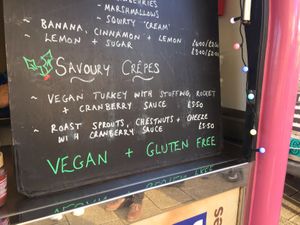 - MARSHMALLOWS
- SQUIRTY 'CREAM'
~ BANANA, CINNAMON + LEMON
~ LEMON + SUGAR
SAVOURY CRÊPES
~ VEGAN TURKEY WITH STUFFING, ROCKET
+ CRANBERRY SAUCE £5.50
~ ROAST SPROUTS, CHESTNUTS + CHEEZE
WITH CRANBERRY SAUCE £5.50
VEGAN + GLUTEN FREE